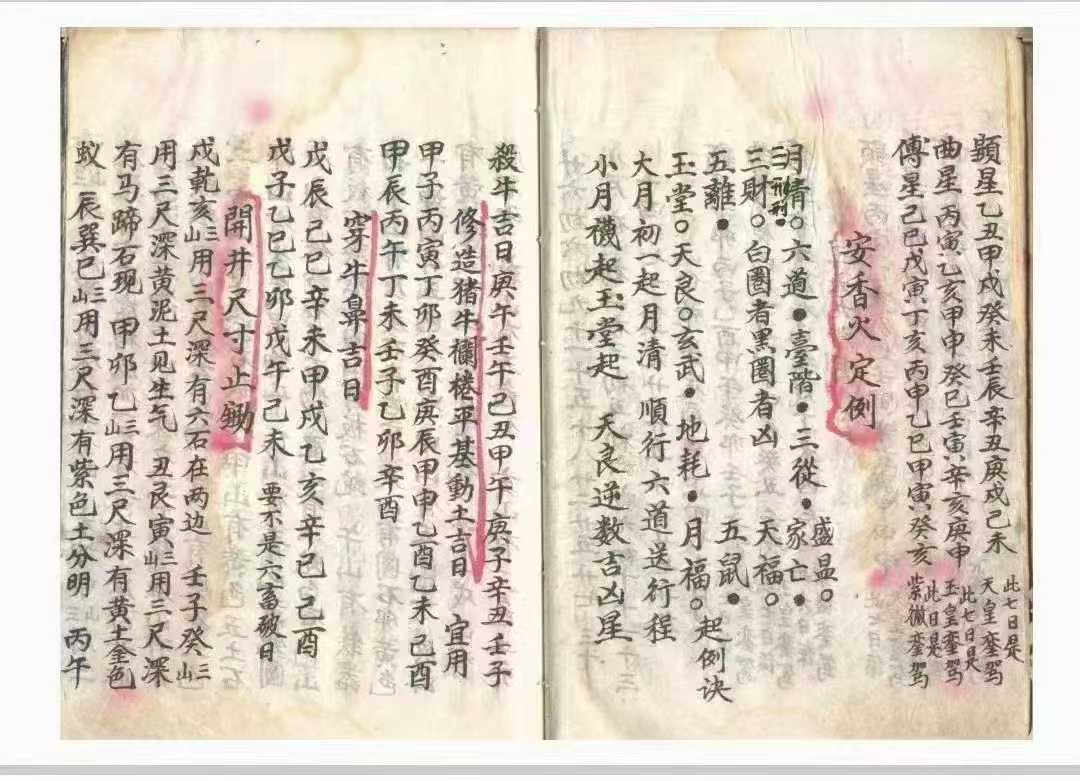 顯星乙丑甲戌癸未壬辰辛丑庚戌己未 此七日是天皇銮驾
曲星丙寅乙亥甲申癸巳壬寅辛亥庚申 此七日是玉皇銮驾
傅星己巳戊寅丁亥丙申乙巳甲寅癸亥 此日是紫微銮驾
安香火定例
月情○六道●臺階●三從●家亡●盛昷○
三財○二刑刑●白圈者黑圈者凶 天福○
五離● 五鼠●
玉堂○天良○玄武●地耗●月福○起例诀
大月初一起月清順行六道送行程
小月襪起玉堂起 天良逆数吉凶星
殺牛吉日庚午壬午己丑甲午庚子辛丑壬子
修造猪牛欄棬平基動土吉日 宜用
甲子丙寅丁卯癸酉庚辰甲申乙酉乙未己酉
甲辰丙午丁未壬子乙卯辛酉
穿牛鼻吉日
戊辰己巳辛未甲戌乙亥辛巳己酉
戊子乙巳乙卯戊午己未 要不是六畜破日
開井尺寸止鋤
戍乾亥三山用三尺深有六石在两边 壬子癸三山
用三尺深黄泥土见生气 丑艮寅三山用三尺深
有马蹄石现 甲卯乙三山用三尺深有黄土金色
蚁 辰巽巳三山用三尺深有紫色土分明 丙午